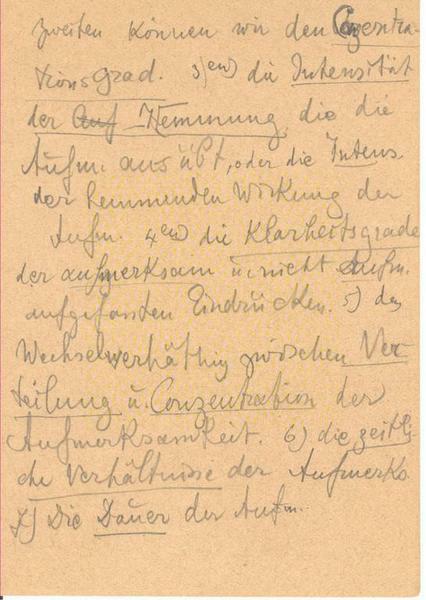 zweiten können wir den Conzentra-
tionsgrad. 3) die Intensität
der Auf Hemmung, die die
Aufm. ausübt, oder die Intens.
der hemmenden Wirkung der
Aufm. die Klarheitsgrade
der aufmerksam u. nicht Aufm.
aufgefassten Eindrücken. 5) das
zwischen Ver-
teilung u. Conzentration der
Aufmerksamkeit. 6) die zeitli-
che Verhältnisse der Aufmerks.
7) Die Dauer der Aufm.